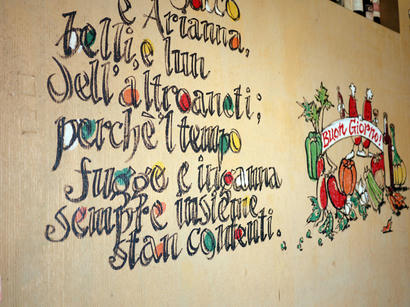 e Arianna,
belli, e l'un
dell'altroanoti;
perchè'l tempo
fugge e inganna
sempre insieme
stan contenti.
Buon Giorno!